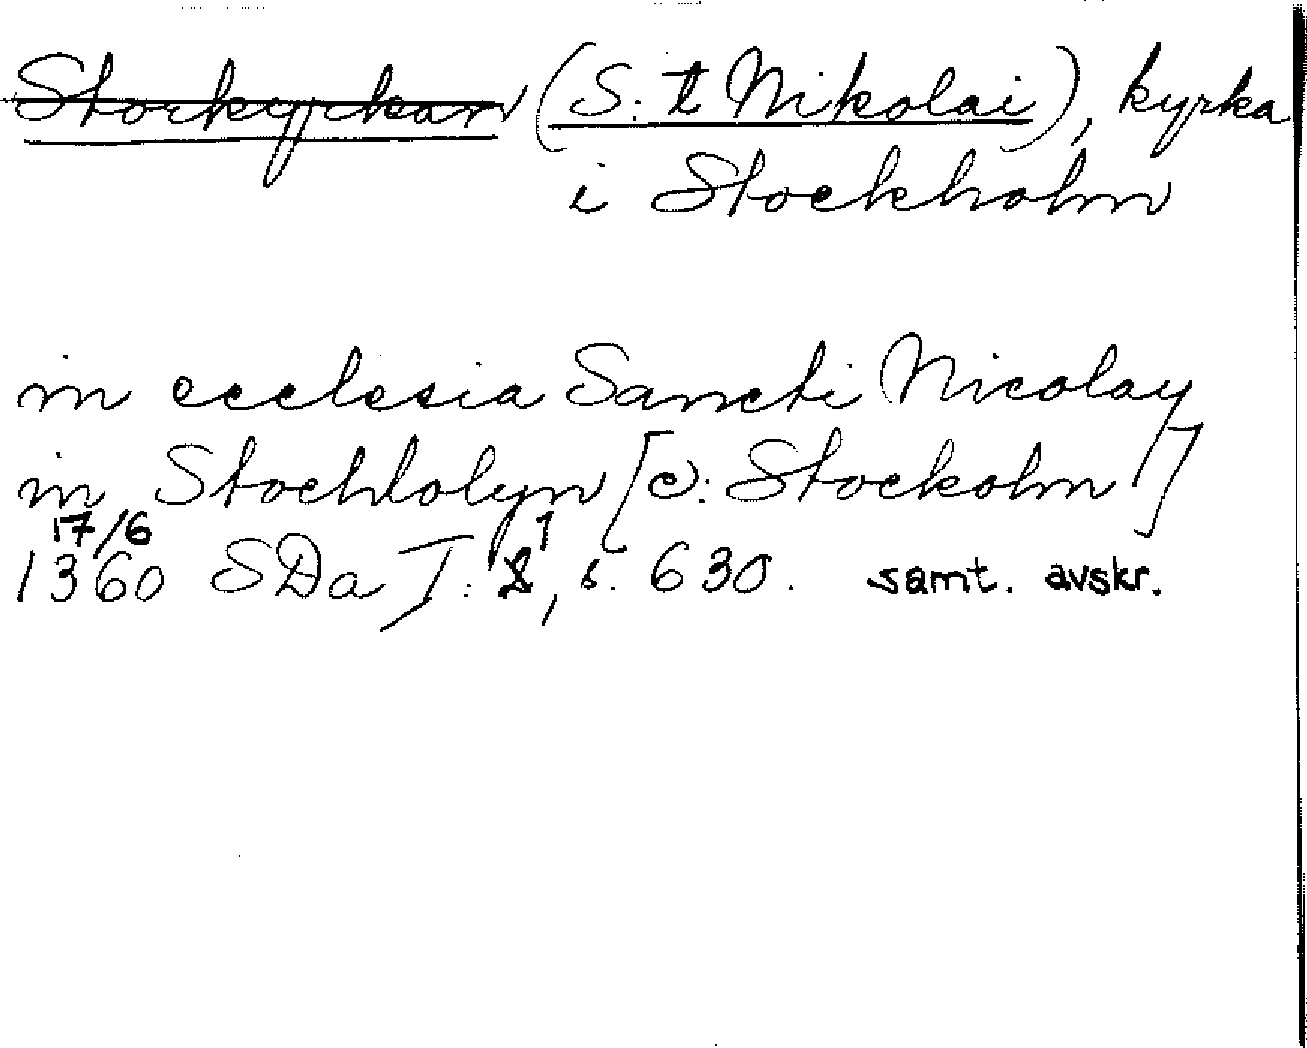 Storkyrkan (S:t Nikolai), kyrka
i Stockholm
in ecclesia Sancti Nicolay
in Stochlolyn [ɔ: Stockolm]
17/6 1
1360 SDa I: 2, s. 630. samt. avskr.